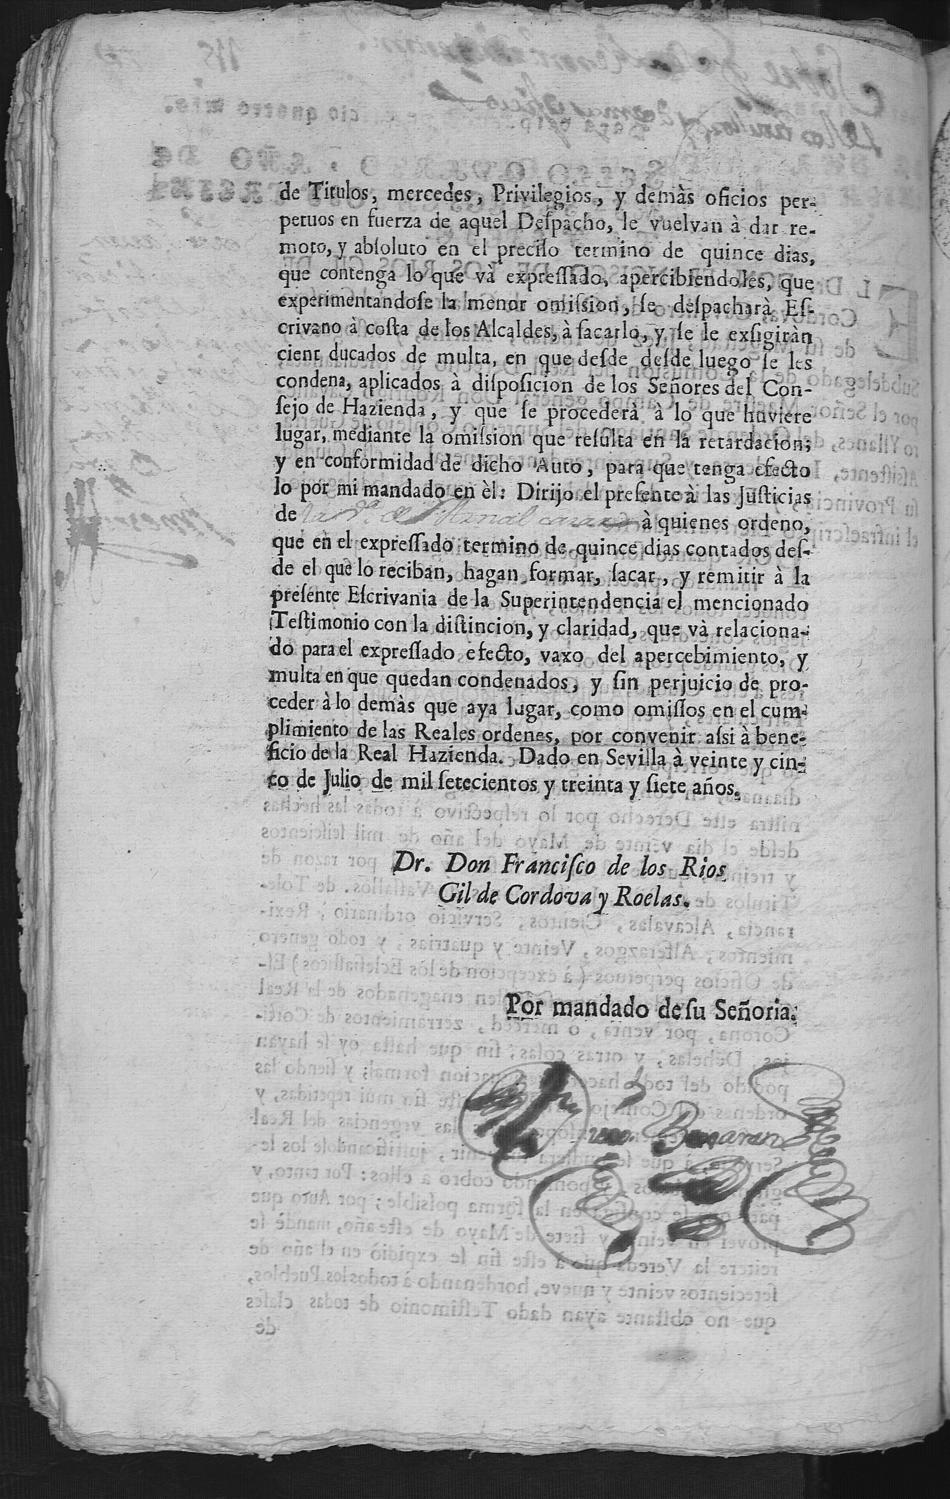 de Titulos, mercedes, Privilegios, y demàs oficios per-
petuos en fuerza de aquel Deſpacho, le vuelvan à dar re-
moto, y abſoluto en el preciſo termino de quince dias,
que contenga lo que và expreſſado, apercibiendoles, que
experimentandoſe la menor omiſsion, ſe deſpacharà Eſ-
crivano à coſta de los Alcaldes, à ſacarlo, y ſe le exſigiràn
cient ducados de multa, en que deſde deſde luego ſe les
condena, aplicados à diſpoſicion de los Señores del Con-
ſejo de Hazienda, y que ſe procederà à lo que huviere
lugar, mediante la omiſsion que reſulta en la retardacion;
y en conformidad de dicho Auto, para que tenga efecto
lo por mi mandado en èl: Dirijo el preſente à las Juſticias
de à quienes ordeno,
que en el expreſſado termino de quince dias contados deſ-
de el que lo reciban, hagan formar, ſacar, y remitir à la
preſente Eſcrivania de la Superintendencia el mencionado
Teſtimonio con la diſtincion, y claridad, que và relaciona-
do para el expreſſado efecto, vaxo del apercebimiento, y
multa en que quedan condenados, y ſin perjuicio de pro-
ceder à lo demàs que aya lugar, como omiſſos en el cum-
plimiento de las Reales ordenes, por convenir aſsi à bene-
ficio de la Real Hazienda. Dado en Sevilla à veinte y cin-
co de Julio de mil ſetecientos y treinta y ſiete años.
Dr. Don Franciſco de los Rios
Gil de Cordova y Roelas.
Por mandado de ſu Señoria.